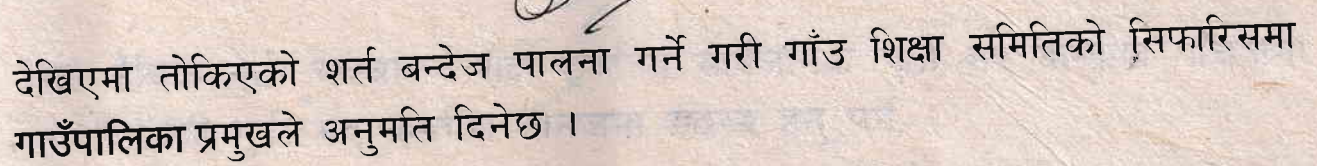 देखिएमा तोकिएको शर्त बन्देज पालना गर्ने गरी गाँउ शिक्षा समितिको सिफारिसमा
गाउँपालिका प्रमुखले अनुमति दिनेछ ।